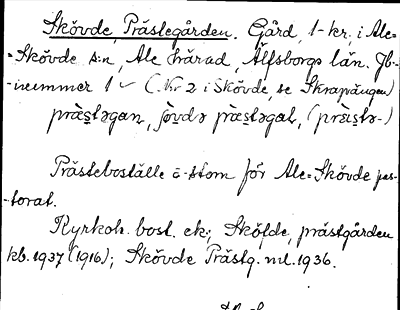 Skövde, Prästegården. Gård, 1-kr. i Ale-
-Skövde s:n, Ale härad, Älfsborgs län. Jb-
-nummer 1 (Nr 2 i Skövde, se Skrapången)
präs̱təgan, ʃövdə präs̱təgaḷ, (präis̱tə-)
Prästeboställe ö-stom för Ale-Skövde pas-
-torat.
Kyrkoh. bost. ek.; Sköfde, prästgården
kb. 1937 (1916); Skövde Prästg. ml. 1936.